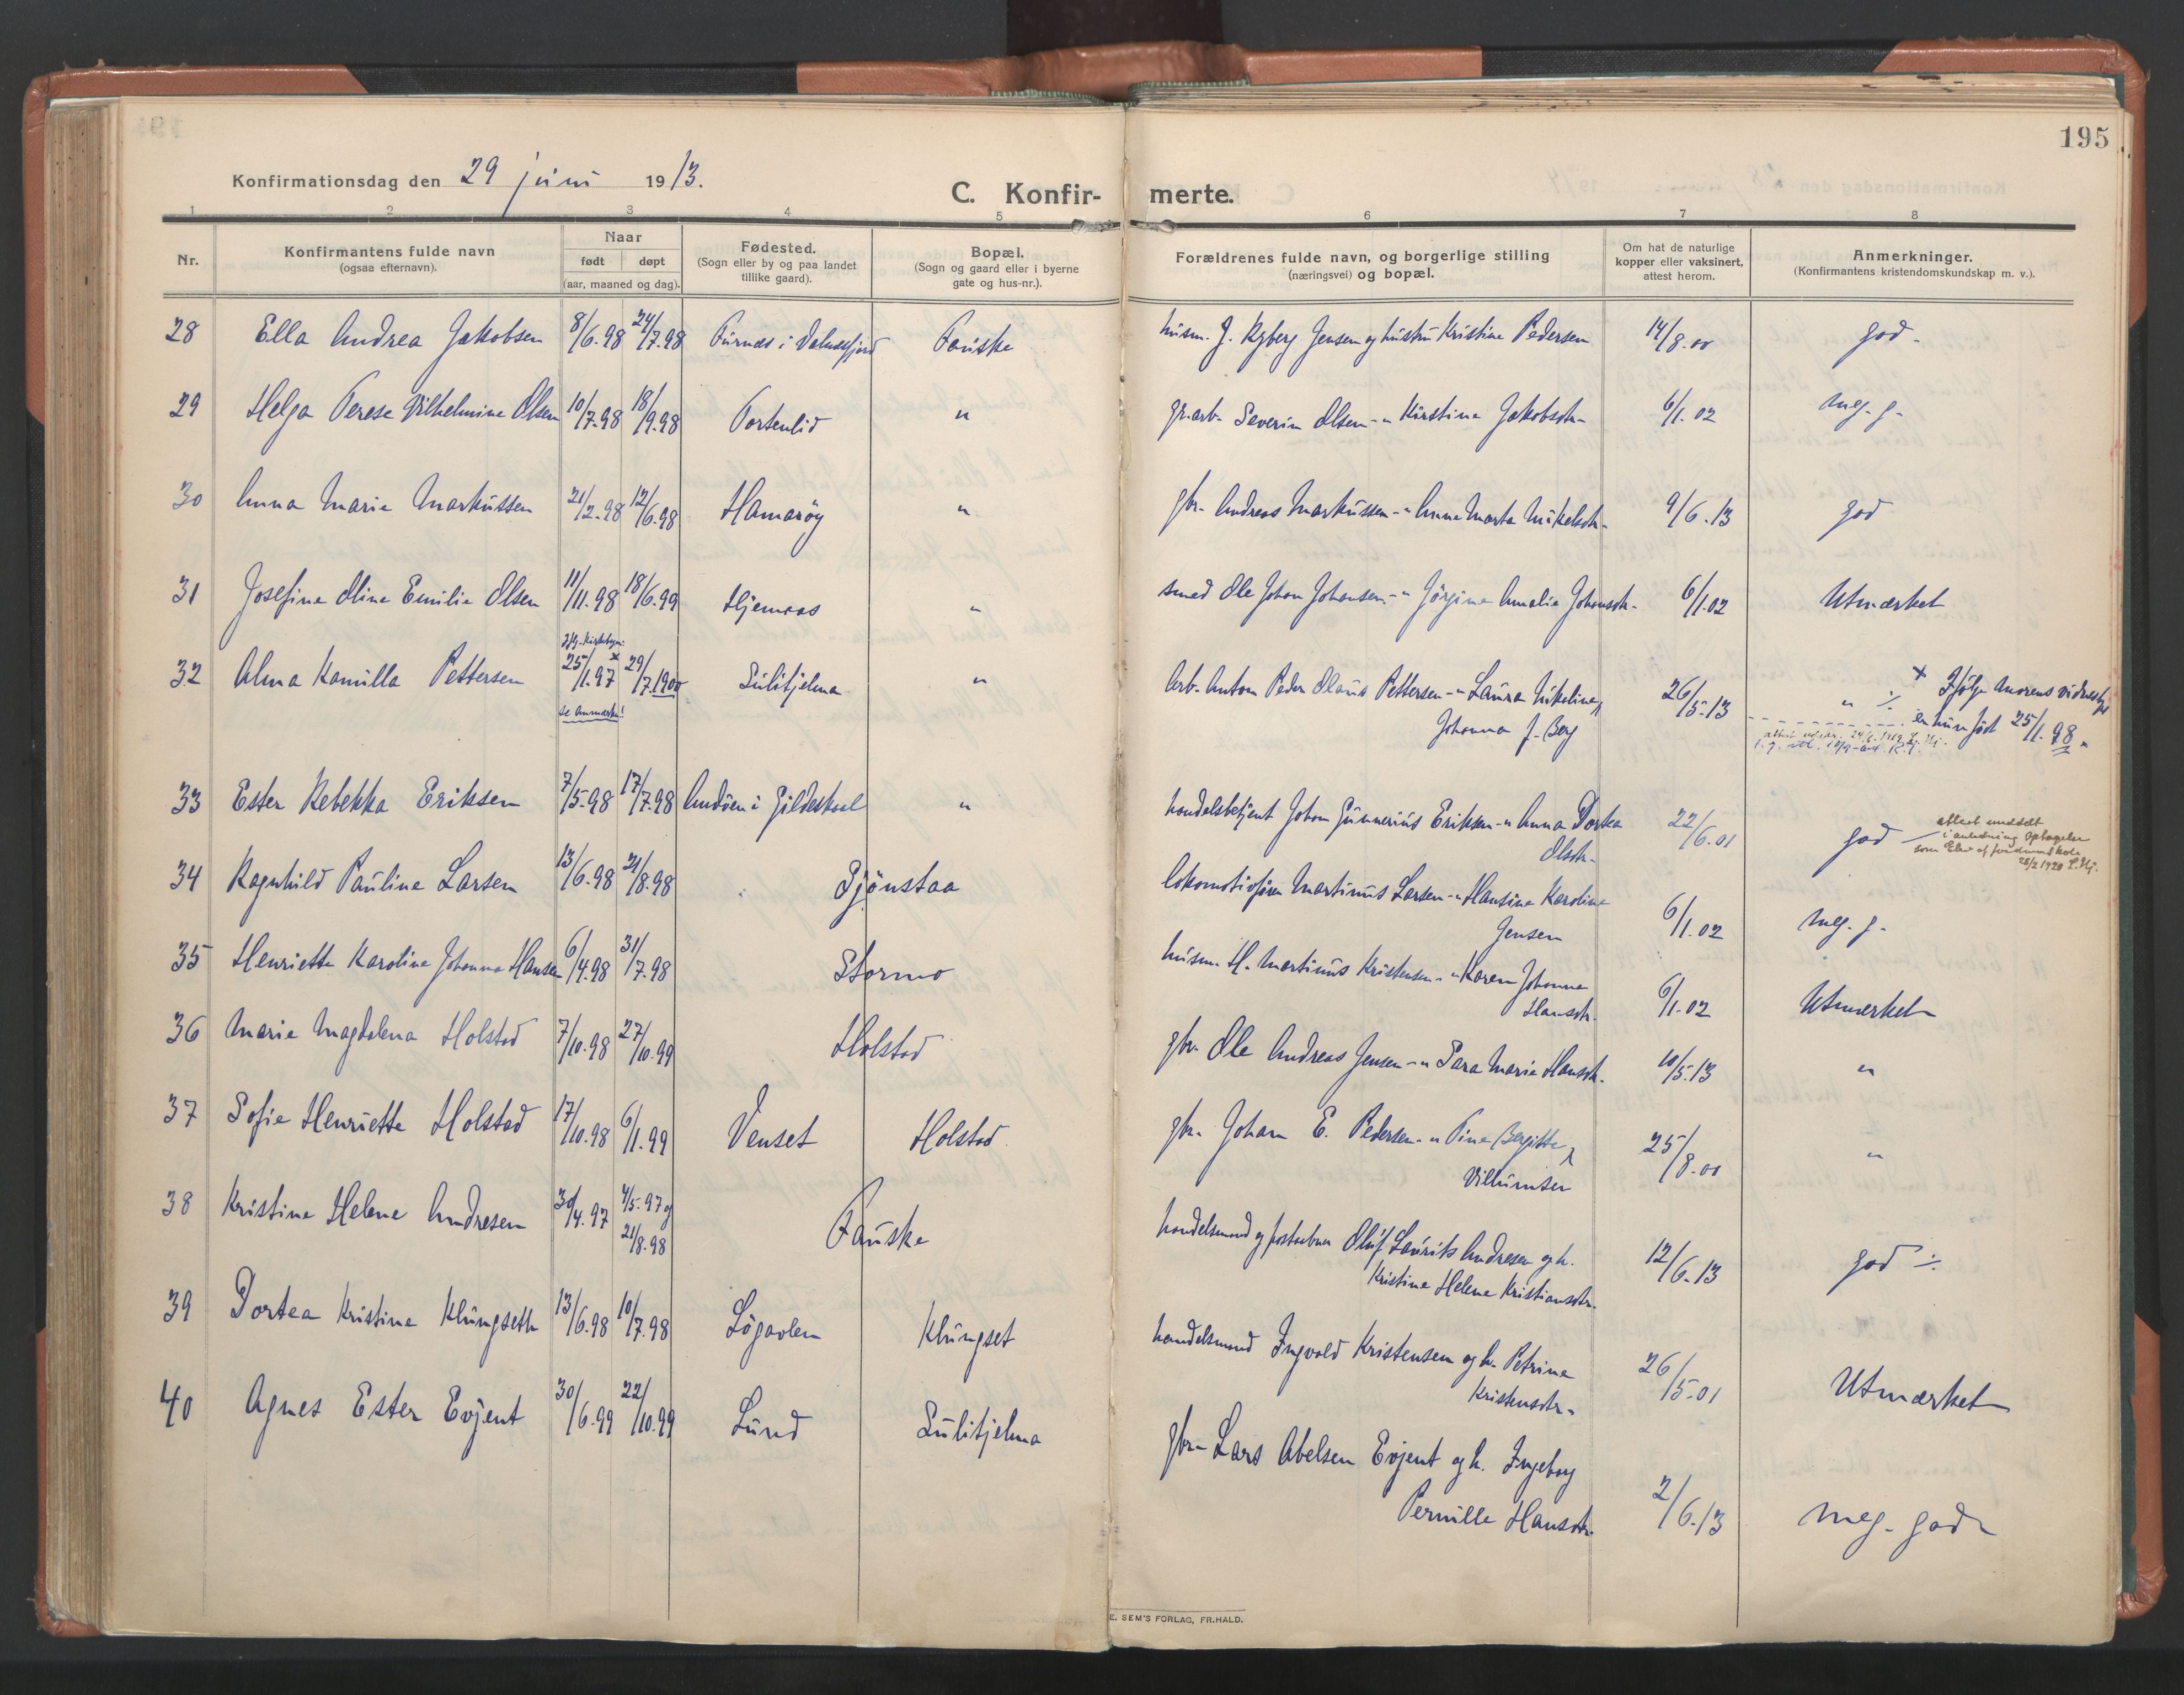 195
Konfirmationsdag den 29 juni 1913.
C. Konfir- merte.
1 2 3 4 5 6 7 8
Nr.
Konfirmantens fulde navn
(ogsaa efternavn).
Naar
født døpt
(aar, maaned og dag).
Fødested.
(Sogn eller by og paa landet
tillike gaard).
Bopæl.
(Sogn og gaard eller i byerne
gate og hus-nr.).
Forældrenes fulde navn, og borgerlige stilling
(næringsvei) og bopæl.
Om hat de naturlige
kopper eller vaksinert,
attest herom.
Anmerkninger.
(Konfirmantens kristendomskundskap m. v.).
28 Ella Andrea Jakobsen 8/6.98 24/7.98 Furnes i Valnesfjord Fauske husm. J. Ryberg Jensen og hustru Kristine Pedersen 14/8.00 god.
29 Helga Terese Vilhelmine Olsen 10/7.98 18/9.98 Tortenlid " gr.arb. Severin Olsen - " Kirstine Jakobsdtr. 6/1.02 meg. g.
30 Anna Marie Markussen 21/2.98 12/6.98 Hamarøy " gbr. Andreas Markussen - " Anne Marta Mikelsdtr. 9/6.13 god
31 Josefine Oline Emilie Olsen 11/11.98 18/6.99 Hjemaas " smed Ole Johan Johansen - " Jørgine Amalie Johansdtr. 6/1.02 Utmærket
32 Alma Kamilla Pettersen 25/1.97 x 29/7.1900 Sulitjelma " Arb. Anton Peder Olaus Pettersen - " Laura Nikoline
Johanna f. Berg 26/5.13 " ÷ x Ifølge morens vidnesbyrd
er hun født 25/1.98.
se anmærkn!
33 Ester Rebekka Eriksen 7/5.98 17/7.98 Andöen i Gildeskaal " handelsbetjent Johan Gunnerius Eriksen - " Anna Dortea
Olsdtr. 22/6.01 god attest utstedt
i anledning optagelse
som Elev af
25/2 1920
34 Ragnhild Pauline Larsen 13/6.98 21/8.98 Sjönstaa lokomotivfører Martinus Larsen - " Hansine Karoline
Jensen 6/1.02 meg. g.
35 Henriette Karoline Johanna Hansen 6/4.98 31/7.98 Stormo husm. H. Martinus Kristensen - " Karen Johanna
Hansdtr. 6/1.02 Utmerket
36 Marie Magdalena Holstad 7/10.98 27/10.99 Holstad gbr. Ole Andreas Jensen - " Sara Marie Hansdtr. 10/5.13 "
37 Sofie Henriette Holstad 17/10.98 6/1.99 Venset Holstad gbr. Johan E. Pedersen - " Tine Bergitte
Villumsen 25/8.00 "
38 Kristine Helene Andresen 30/4.97 4/5.97 og
21/8.98 Fauske handelsmand og postaabner Oluf Laurits Andresen og h.
Kristine Helene Kristiansdtr. 12/6.13 god ÷
39 Dortea Kristine Klungseth 13/6.98 10/7.98 Løgavlen Klungset handelsmand Ingvald Kristensen og h. Petrine
Kristensdtr. 26/5.01 Utmærket
40 Agnes Ester Evjent 30/6.99 22/10.99 Lund Sulitjelma gbr. Lars Abelsen Evjent og h. Ingeborg
Pernille Hansdtr. 2/6.13 meg. god
E. SEM'S FORLAG, FR.HALD.